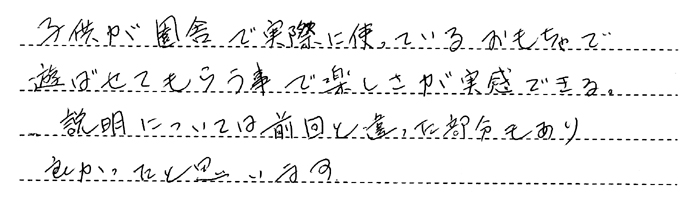 子供が園舎で実際に使っているおもちゃで
遊ばせてもらう事で楽しさが実感できる。
説明については前回と違った部分もあり
良かったと思います